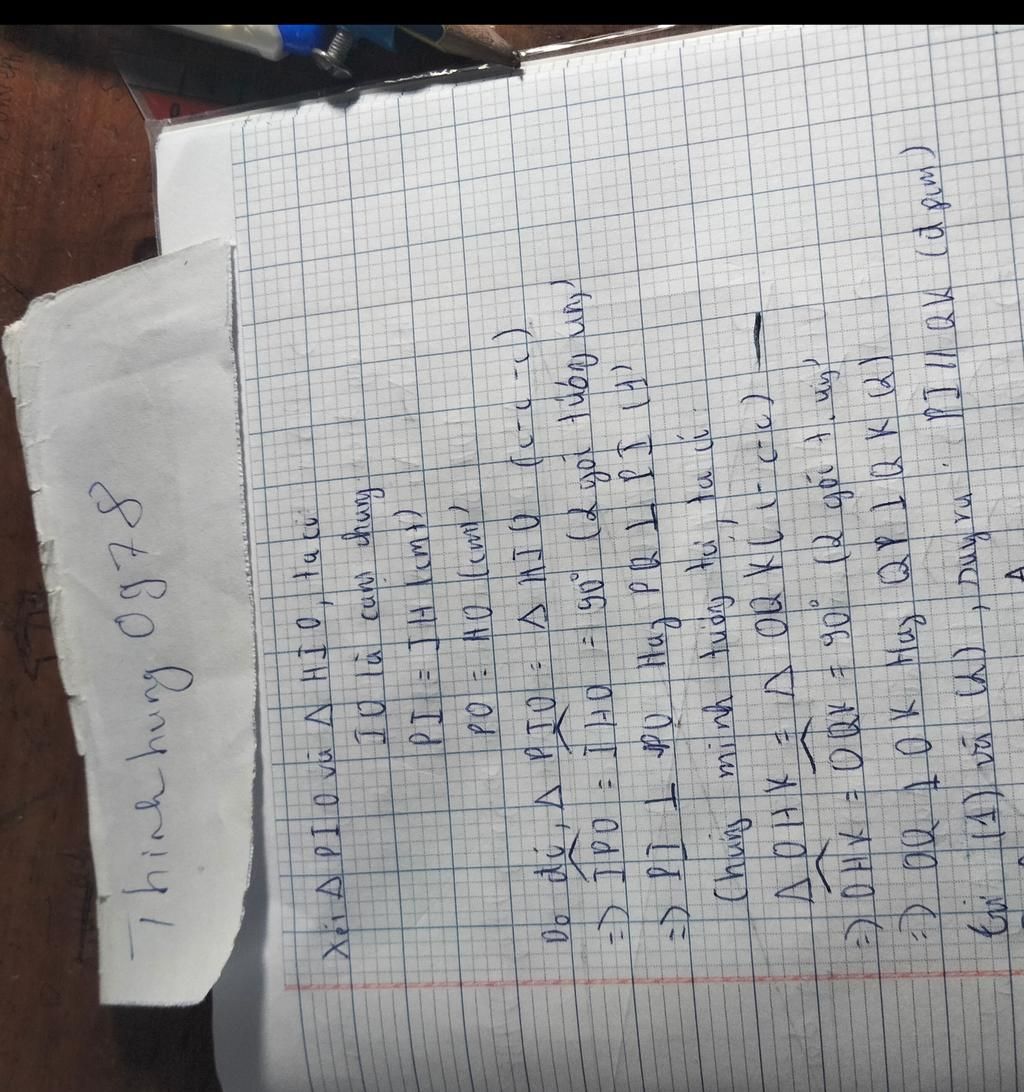 Thinhhung 0978
Xét Δ PIO và Δ HIO, ta có
IO là cạnh chung
PI = IH (cmt)
PO = HO (cmt)
Do đó, Δ PIO = Δ HIO (c-c-c)
=) IPO = IHO = 90° (2 gói tướng ứng)
=) PI ⊥ PO Hay PQ ⊥ PI (1)
Chứng minh tướng tự, ta có
Δ OHK = Δ OQK (c-c-c)
=) OHK = OQK = 90° (2 gói t. ứng)
=) OQ ⊥ QK Hay QP ⊥ QK (2)
(1) và (2), suy ra: PI // QK (đpcm)